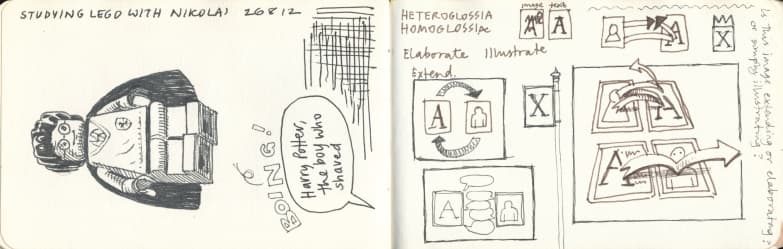 STUDYING LEGO WITH NIKOLAJ 26 8 12
BOING!
Harry Potter,
the boy who
shaved
HETEROGLOSSIA
HOMOGLOSSIA
image text
A
Elaborate Illustrate
Extend.
A
X
A
A
X
A
A
is this image extending or elaborating?
or simply illustrating?